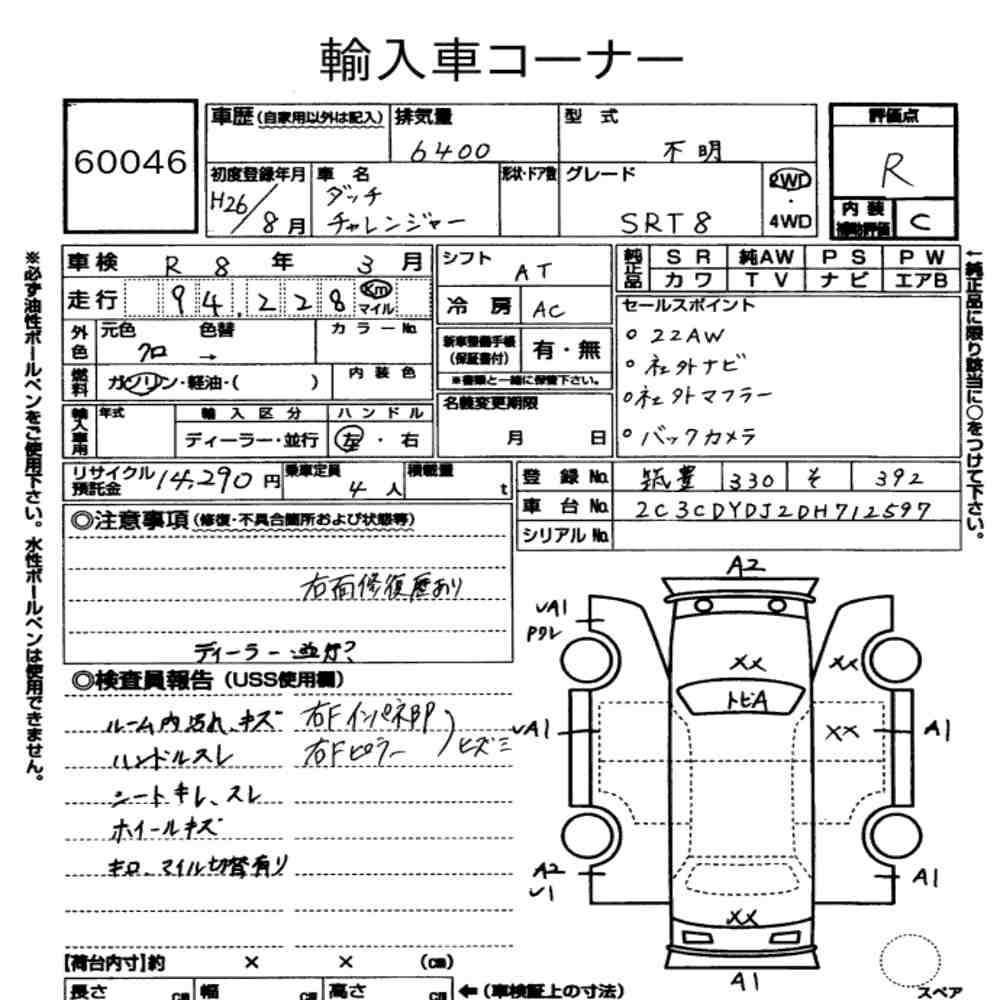 輸入車コーナー
60046
車歴(自家用以外は記入)
排気量
6400
型式
不明
評価点
R
内装
補助評価
C
初度登録年月
H26/8月
車名
ダッチ
チャレンジャー
形状・ドア数
グレード
SRT8
2WD
・
4WD
車検 R 8 年 3 月
走行 94,228 Km マイル
外色
元色 クロ
色替 →
カラーNo.
燃料
ガソリン・軽油・( )
内装色
輸入車用
年式
輸入区分
ディーラー・並行
ハンドル
左・右
シフト AT
冷房 AC
新車整備手帳
(保証書付)
有・無
※書類と一緒に保管下さい。
名義変更期限
月 日
純正品
SR 純AW PS PW
カワ TV ナビ エアB
セールスポイント
○22AW
○社外ナビ
○社外マフラー
○バックカメラ
リサイクル
預託金 14,290円
乗車定員 4人
積載量 t
登録No. 筑豊 330 そ 392
車台No. 2C3CDYDJ2DH712597
シリアルNo.
◎注意事項(修復・不具合箇所および状態等)
右面修復歴あり
ディーラー・並行?
◎検査員報告(USS使用欄)
ルーム内汚れ、キズ
ハンドルスレ
シートキレ、スレ
ホイールキズ
キロ、マイル切替有り
右Fインパネ部
右Fピラー
ヒズミ
A2
√A1
Pクレ
XX
XX
トビA
√A1
XX
A1
A2
√1
XX
A1
A1
スペア
【荷台内寸】約 × × (cm)
長さ cm 幅 cm 高さ cm
←(車検証上の寸法)
※必ず油性ボールペンをご使用下さい。水性ボールペンは使用できません。
←純正品に限り該当に○をつけて下さい。